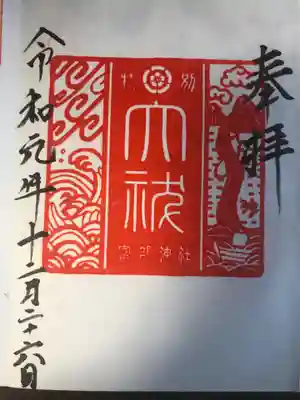 奉拝
特別
大祓
神社
令和元年十二月二十六日